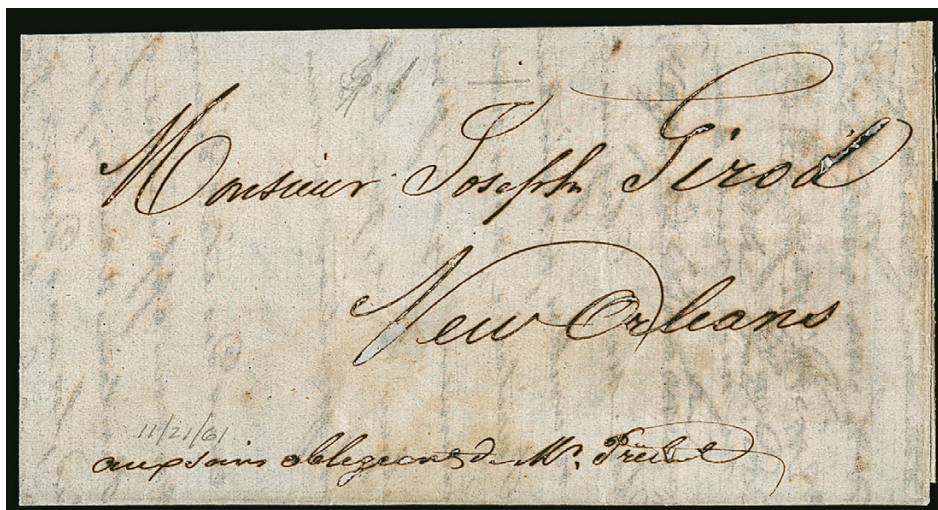 Monsieur Joseph Girod
New Orleans
11/21/61
aux soins obligeans de Mr.